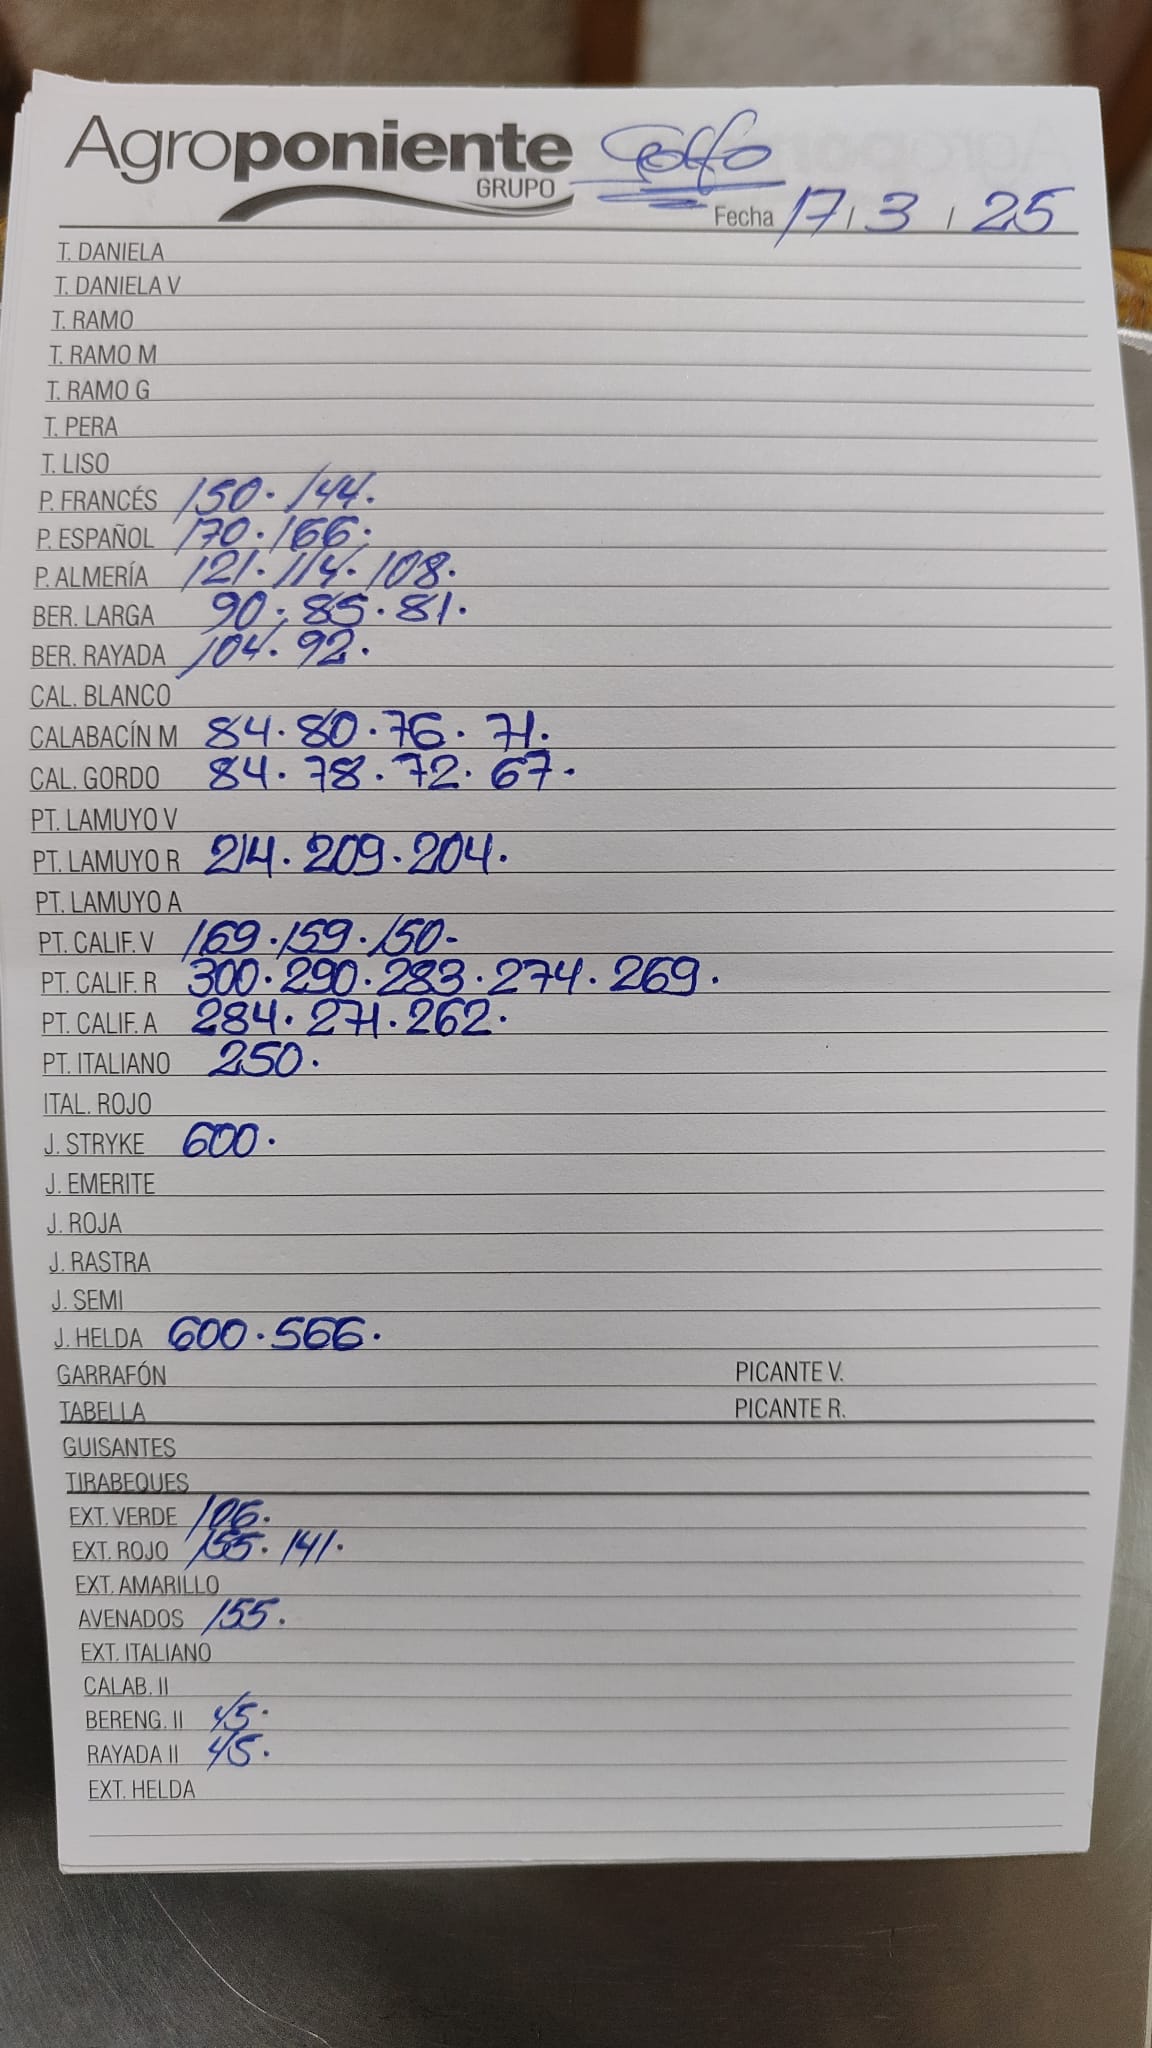 Agroponiente
GRUPO
Golfo
Fecha 17/3/25
T. DANIELA
T. DANIELA V
T. RAMO
T. RAMO M
T. RAMO G
T. PERA
T. LISO
P. FRANCÉS 150. 144.
P. ESPAÑOL 170. 166.
P. ALMERÍA 121. 114. 108.
BER. LARGA 90. 85. 81.
BER. RAYADA 104. 92.
CAL. BLANCO
CALABACÍN M 84. 80. 76. 71.
CAL. GORDO 84. 78. 72. 67.
PT. LAMUYO V
PT. LAMUYO R 214. 209. 204.
PT. LAMUYO A
PT. CALIF. V 169. 159. 150-
PT. CALIF. R 300. 290. 283. 274. 269.
PT. CALIF. A 284. 271. 262.
PT. ITALIANO 250.
ITAL. ROJO
J. STRYKE 600.
J. EMERITE
J. ROJA
J. RASTRA
J. SEMI
J. HELDA 600. 566.
GARRAFÓN PICANTE V.
TABELLA PICANTE R.
GUISANTES
TIRABEQUES
EXT. VERDE 106.
EXT. ROJO 155. 141.
EXT. AMARILLO
AVENADOS 155.
EXT. ITALIANO
CALAB. II
BERENG. II 45.
RAYADA II 45.
EXT. HELDA